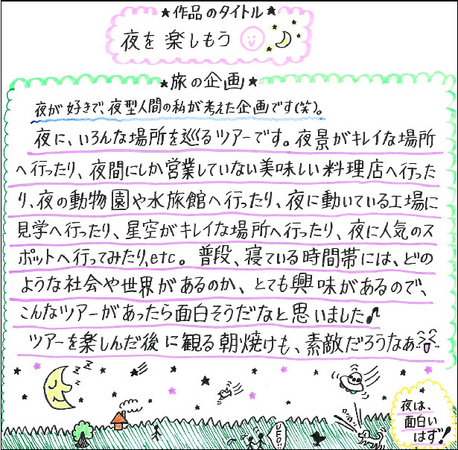 ★作品のタイトル★
夜を楽しもう
★旅の企画★
夜が好きで、夜型人間の私が考えた企画です(笑)。
夜に、いろんな場所を巡るツアーです。夜景がキレイな場所
へ行ったり、夜間にしか営業していない美味しい料理店へ行った
り、夜の動物園や水旅館へ行ったり、夜に動いている工場に
見学へ行ったり、星空がキレイな場所へ行ったり、夜に人気のス
ポットへ行ってみたり、etc。普段、寝ている時間帯には、どの
ような社会や世界があるのか、とても興味があるので、
こんなツアーがあったら面白そうだなと思いました♪
ツアーを楽しんだ後に観る朝焼けも、素敵だろうなあ
z z z
夜は、
面白い
はず!!
UFO!!